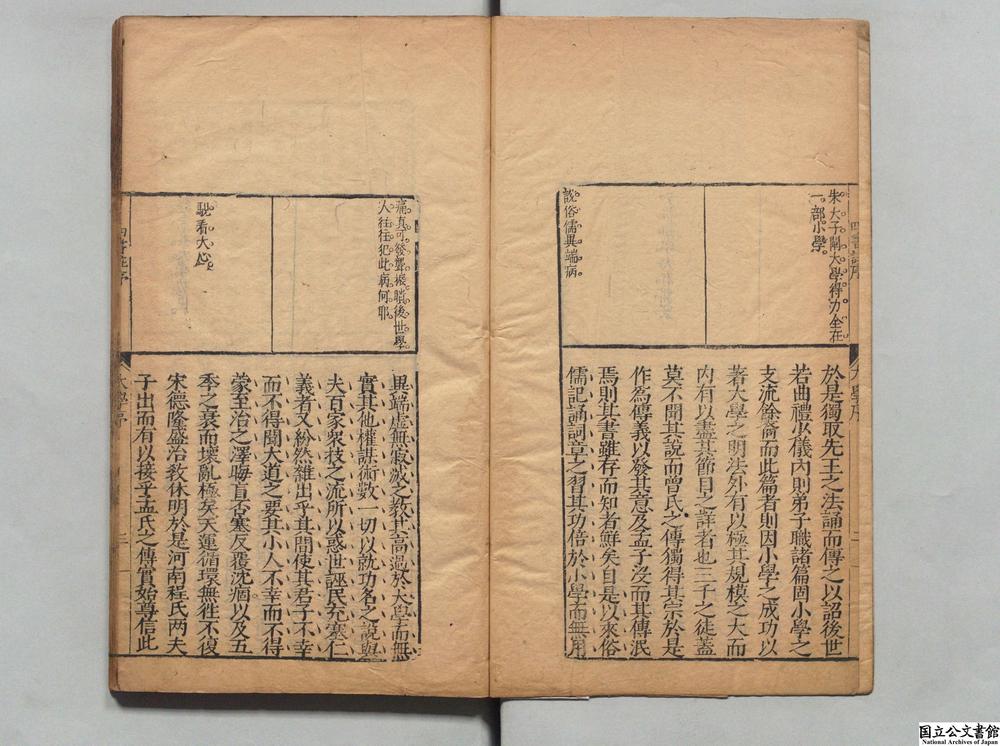 朱夫子闡大學得力全在
一部小學
說俗儒異端病
大學序
於是獨取先王之法誦而傳之以詔後世
若曲禮少儀內則弟子職諸篇固小學之
支流餘裔而此篇者則因小學之成功以
著大學之明法外有以極其規模之大而
內有以盡其節目之詳者也三千之徒蓋
莫不聞其說而曾氏之傳獨得其宗於是
作為傳義以發其意及孟子沒而其傳泯
焉則其書雖存而知者鮮矣自是以來俗
儒記誦詞章之習其功倍於小學而無用
痛真可發聾振聵後世學
人往往犯此病何耶
看大心
異端虛無寂滅之教其高過於大學而無
實其他權謀術數一切以就功名之說與
夫百家衆技之流所以惑世誣民充塞仁
義者又紛然雜出乎其間使其君子不幸
而不得聞大道之要其小人不幸而不得
蒙至治之澤晦盲否塞反覆沈痼以及五
季之衰而壞亂極矣天運循環無徃不復
宋德隆盛治教休明於是河南程氏两夫
子出而有以接乎孟氏之傳實始尊信此
大學序
国立公文書館
National Archives of Japan